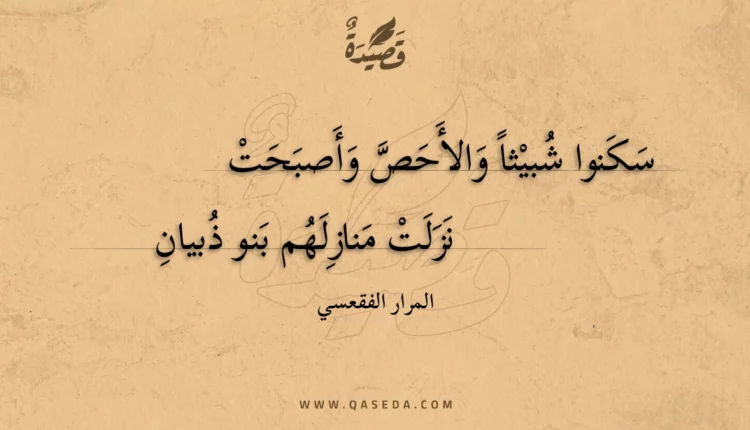 قَصِيدَةٌ
سَكَنوا شُبَيْثاً وَالأَحَصَّ وَأَصبَحَتْ
نَزَلَتْ مَنازِلَهُم بَنو ذُبيانِ
المرار الفقعسي
WWW.QASEDA.COM